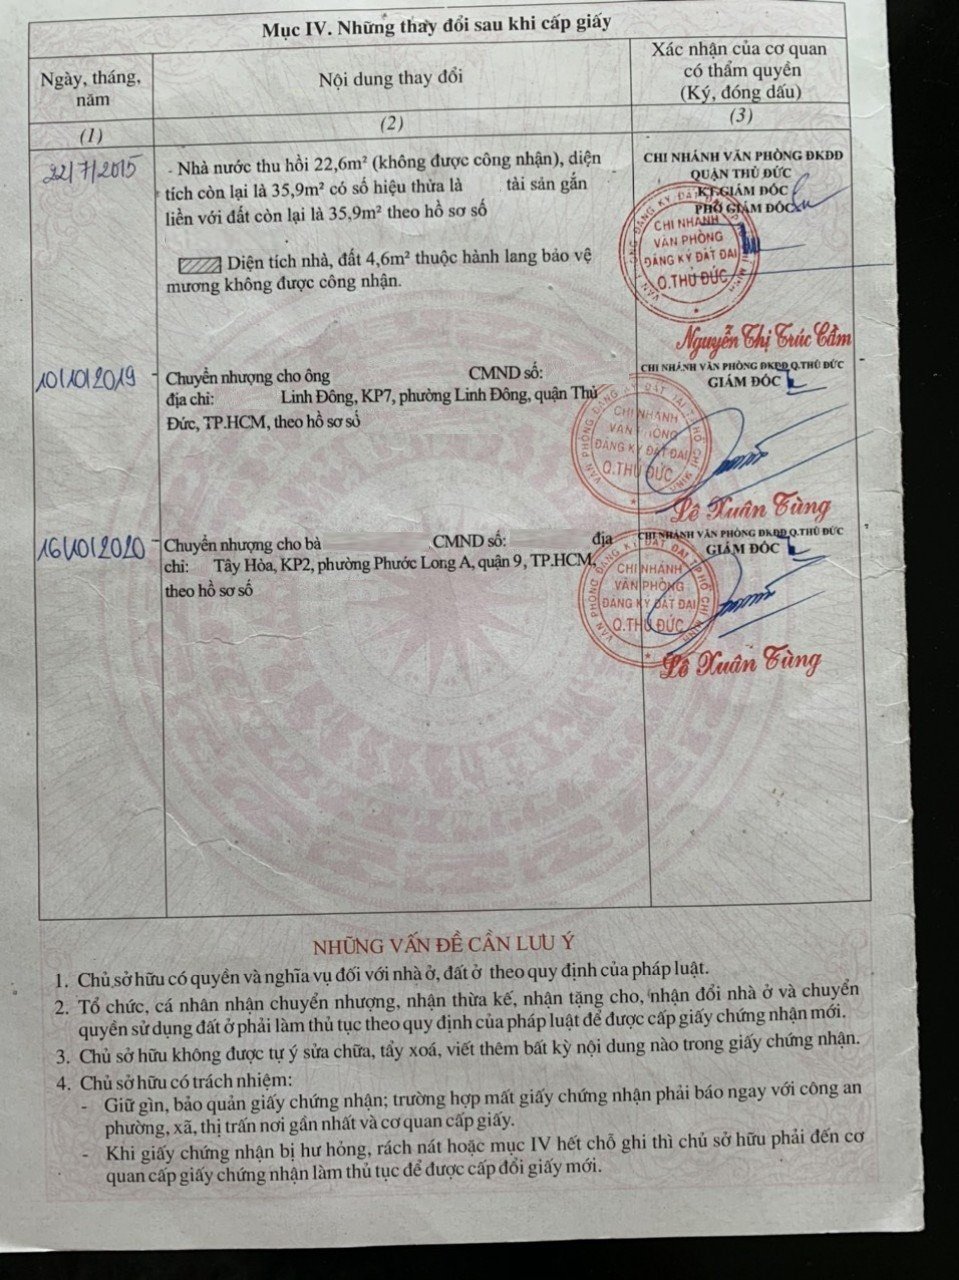 Mục IV. Những thay đổi sau khi cấp giấy
Ngày, tháng,
năm
Nội dung thay đổi
Xác nhận của cơ quan
có thẩm quyền
(Ký, đóng dấu)
(1)
(2)
(3)
22/7/2015
- Nhà nước thu hồi 22,6m² (không được công nhận), diện
tích còn lại là 35,9m² có số hiệu thửa là tài sản gắn
liền với đất còn lại là 35,9m² theo hồ sơ số
Diện tích nhà, đất 4,6m² thuộc hành lang bảo vệ
mương không được công nhận.
CHI NHÁNH VĂN PHÒNG ĐKĐĐ
QUẬN THỦ ĐỨC
KT.GIÁM ĐỐC
PHÓ GIÁM ĐỐC
VĂN PHÒNG ĐĂNG KÝ ĐẤT ĐAI TP HỒ CHÍ MINH
CHI NHÁNH
VĂN PHÒNG
ĐĂNG KÝ ĐẤT ĐAI
Q.THỦ ĐỨC
Nguyễn Thị Trúc Cầm
10/10/2019
Chuyển nhượng cho ông CMND số:
địa chỉ: Linh Đông, KP7, phường Linh Đông, quận Thủ
Đức, TP.HCM, theo hồ sơ số
CHI NHÁNH VĂN PHÒNG ĐKĐĐ Q.THỦ ĐỨC
GIÁM ĐỐC
VĂN PHÒNG ĐĂNG KÝ ĐẤT ĐAI TP HỒ CHÍ MINH
CHI NHÁNH
VĂN PHÒNG
ĐĂNG KÝ ĐẤT ĐAI
Q.THỦ ĐỨC
Lê Xuân Tùng
16/10/2020
Chuyển nhượng cho bà ,CMND số: địa
chỉ: Tây Hòa, KP2, phường Phước Long A, quận 9, TP.HCM,
theo hồ sơ số
CHI NHÁNH VĂN PHÒNG ĐKĐĐ Q.THỦ ĐỨC
GIÁM ĐỐC
VĂN PHÒNG ĐĂNG KÝ ĐẤT ĐAI TP HỒ CHÍ MINH
CHI NHÁNH
VĂN PHÒNG
ĐĂNG KÝ ĐẤT ĐAI
Q.THỦ ĐỨC
Lê Xuân Tùng
NHỮNG VẤN ĐỀ CẦN LƯU Ý
1. Chủ sở hữu có quyền và nghĩa vụ đối với nhà ở, đất ở theo quy định của pháp luật.
2. Tổ chức, cá nhân nhận chuyển nhượng, nhận thừa kế, nhận tặng cho, nhận đổi nhà ở và chuyển
quyền sử dụng đất ở phải làm thủ tục theo quy định của pháp luật để được cấp giấy chứng nhận mới.
3. Chủ sở hữu không được tự ý sửa chữa, tẩy xoá, viết thêm bất kỳ nội dung nào trong giấy chứng nhận.
4. Chủ sở hữu có trách nhiệm:
- Giữ gìn, bảo quản giấy chứng nhận; trường hợp mất giấy chứng nhận phải báo ngay với công an
phường, xã, thị trấn nơi gần nhất và cơ quan cấp giấy.
- Khi giấy chứng nhận bị hư hỏng, rách nát hoặc mục IV hết chỗ ghi thì chủ sở hữu phải đến cơ
quan cấp giấy chứng nhận làm thủ tục để được cấp đổi giấy mới.